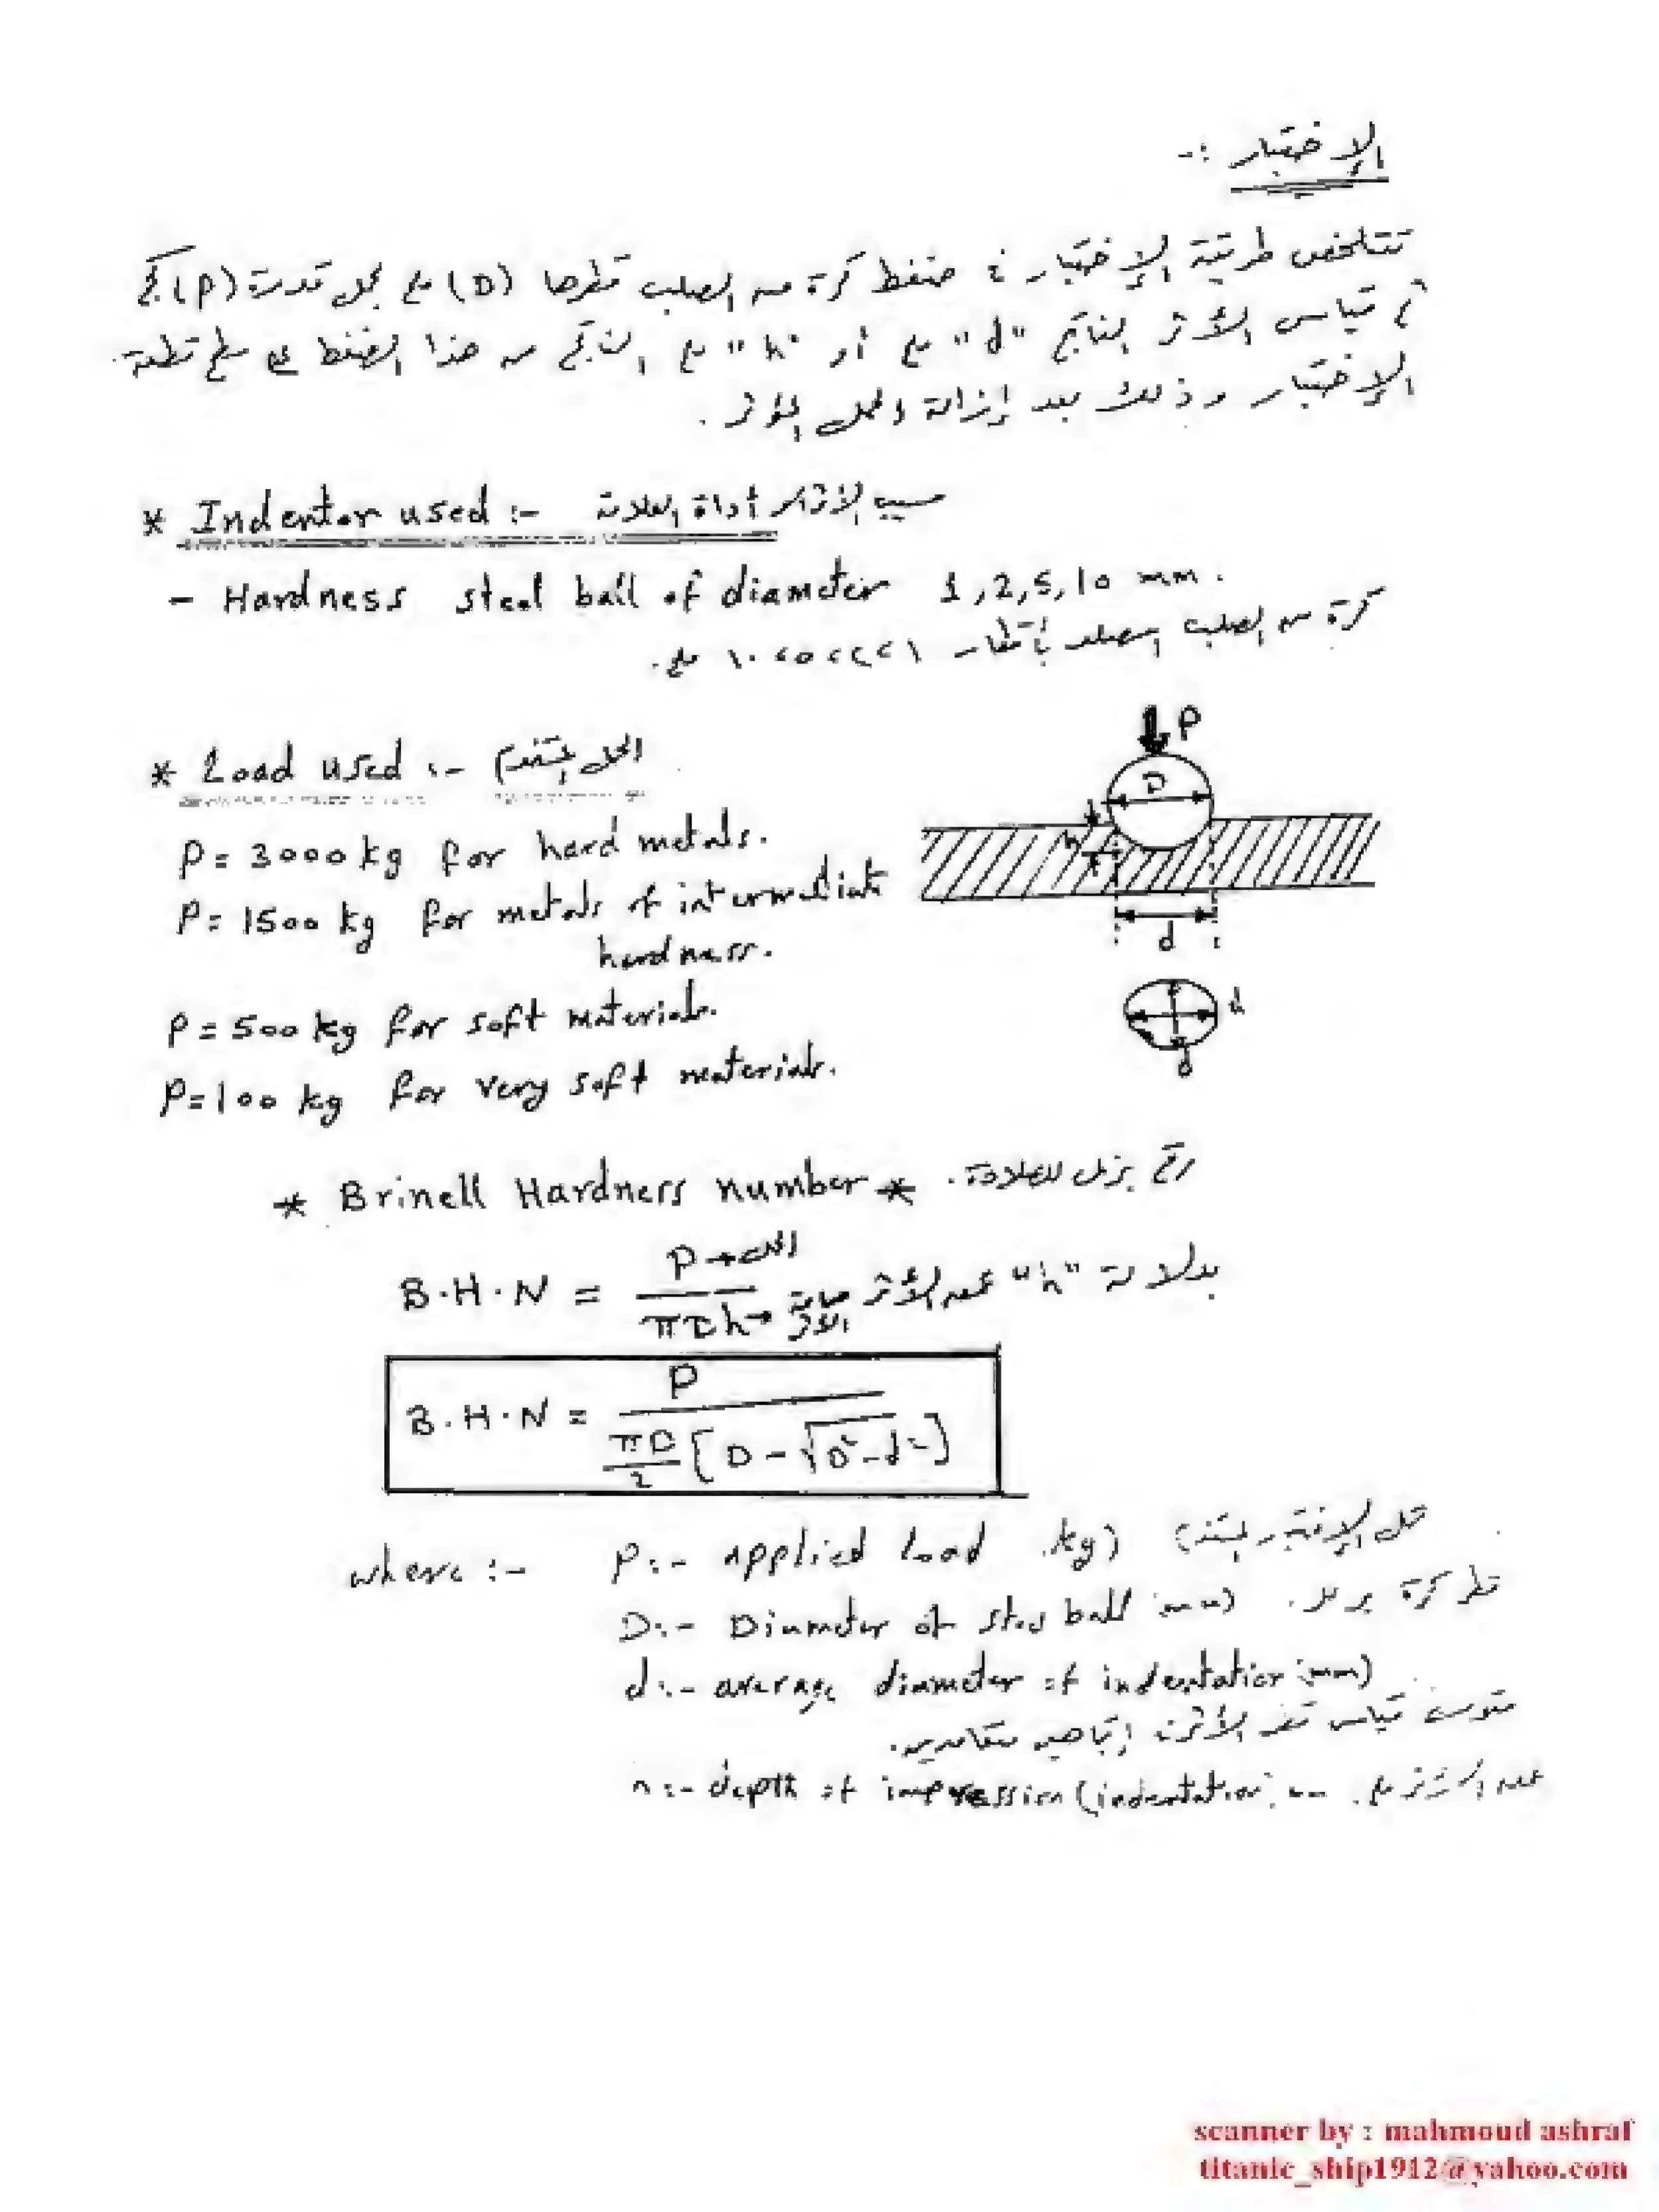 الإختبار :-
تتلخص طريقة الإختبار فى ضغط كرة من الصلب قطرها (D) مم بحمل قدرة (P) كجم
ثم قياس الأثر الناتج "d" مم أو "h" مم الناتج من هذا الضغط على سطح قطعة
الإختبار وذلك بعد إزالة الحمل المؤثر .
* Indentor used :- أداة العلامة
- Hardness steel ball of diameter 1,2,5,10 mm.
كرة من الصلب المصلد بأقطار ١،٢،٥،١٠ مم.
* Load used :- الحمل المستخدم
P = 3000 kg for hard metals.
P = 1500 kg for metals of intermediate
hardness.
P = 500 kg for soft materials.
P = 100 kg for very soft materials.
P
D
h
d
d
d
* Brinell Hardness number * رقم برنل للصلادة.
B.H.N = P → الحمل / πDh → مساحة الأثر بدلالة "h" عمق الأثر
B.H.N = P / πD/2 [D - √D²-d²]
where :- P:- applied load kg) حمل الإختبار المستخدم
D:- Diameter of steel ball mm) قطر كرة برنل.
d:- average diameter of indentation mm)
متوسط قياس قطر الأثر فى إتجاهين متعامدين.
h:- depth of impression (indentation) mm. عمق الأثر مم.
scanner by : mahmoud ashraf
titanic_ship1912@yahoo.com